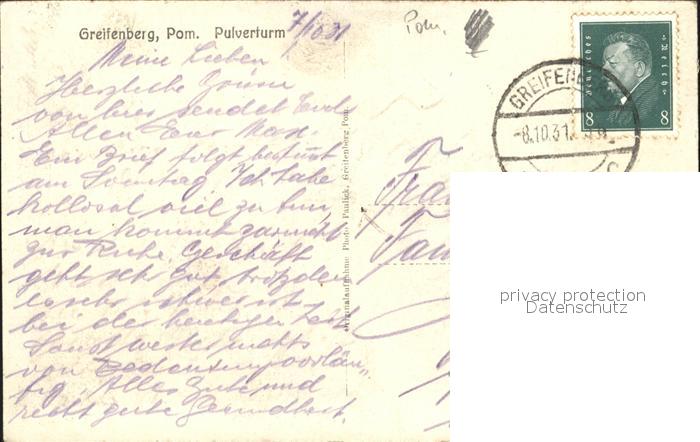 Greifenberg, Pom. Pulverturm
7/10 31
Pom.
Meine Lieben
Herzliche Grüsse
von hier sendet Euch
Allen Euer Max.
Ein Brief folgt bestimmt
am Sonntag. Ich habe
kollosal viel zu tun,
man kommt garnicht
zur Ruhe. Geschäft
geht sehr gut, trotzdem
es sehr schwer ist
bei der heutigen Zeit
Sonst weiter nichts
von Bedeutung vorläu-
fig. Alles Gute und
recht gute Gesundheit.
Originalaufnahme Photo-Paulick, Greifenberg Pom.
Deutsches Reich
8 8
GREIFENBE
-8.10.31.
privacy protection
Datenschutz